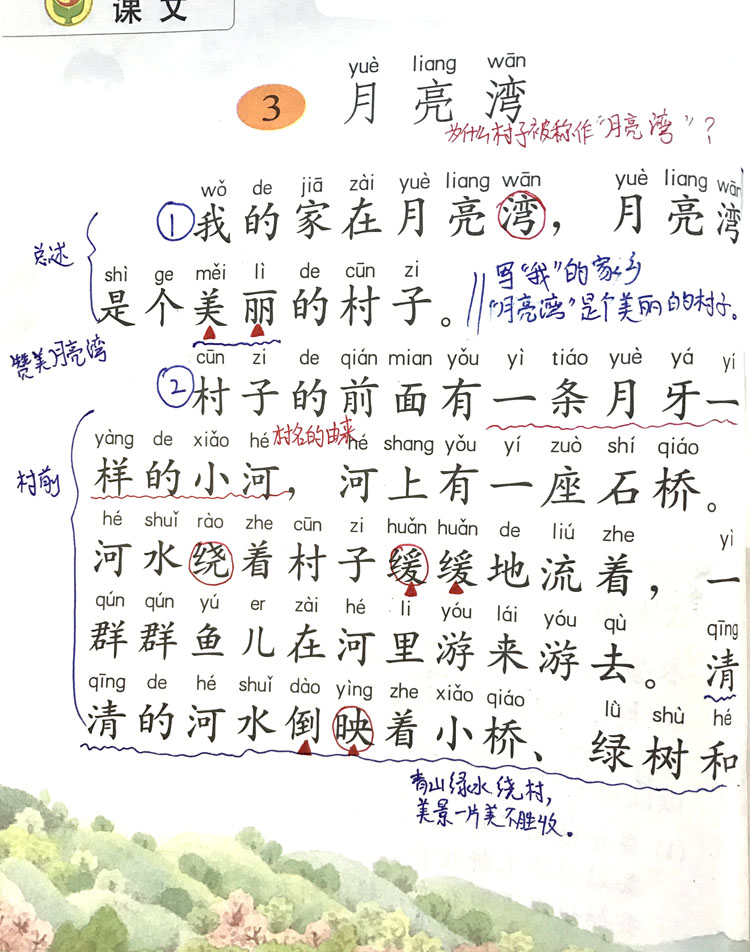 课文
yuè liang wān
3 月亮湾
为什么村子被称作“月亮湾”？
wǒ de jiā zài yuè liang wān yuè liang wān
①我的家在月亮湾，月亮湾
总述
shì ge měi lì de cūn zi
是个美丽的村子。
写“我”的家乡
“月亮湾”是个美丽的村子.
赞美月亮湾
cūn zi de qián mian yǒu yì tiáo yuè yá yí
②村子的前面有一条月牙一
村名的由来
yàng de xiǎo hé hé shang yǒu yí zuò shí qiáo
样的小河，河上有一座石桥。
村前
hé shuǐ rào zhe cūn zi huǎn huǎn de liú zhe yì
河水绕着村子缓缓地流着，一
qún qún yú er zài hé li yóu lái yóu qù qīng
群群鱼儿在河里游来游去。清
qīng de hé shuǐ dào yìng zhe xiǎo qiáo lǜ shù hé
清的河水倒映着小桥、绿树和
青山绿水绕村,
美景一片美不胜收。